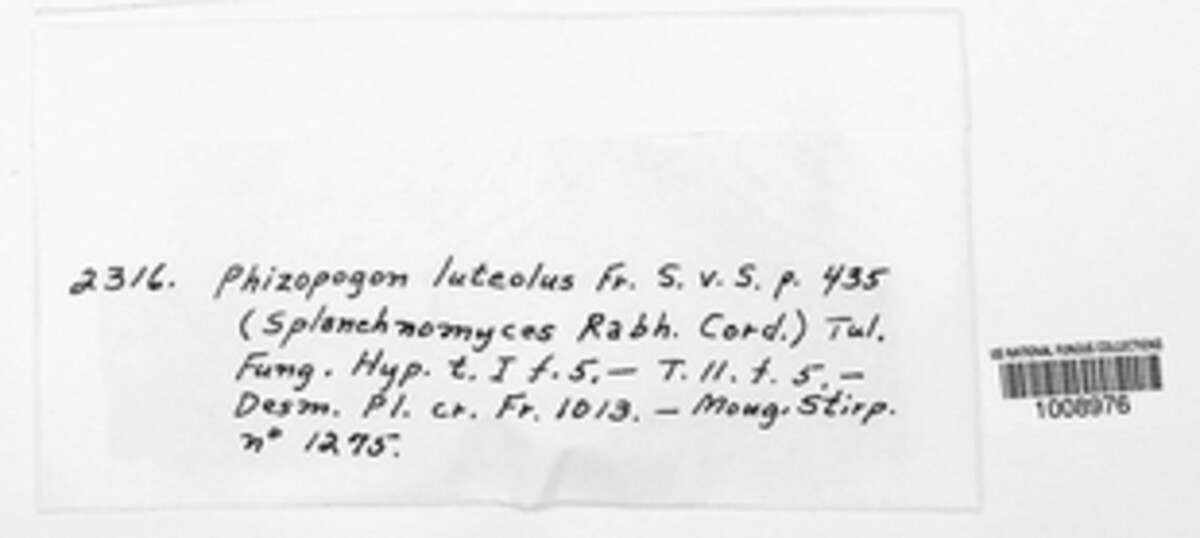 2316. Phizopogon luteolus Fr. S. v. S. p. 435
(Splanchnomyces Rabh. Cord.) Tul.
Fung. Hyp. t. I f. 5. — T. 11. f. 5. —
Desm. Pl. cr. Fr. 1013. — Moug. Stirp.
n° 1275.
US NATIONAL FUNGUS COLLECTIONS
1008976